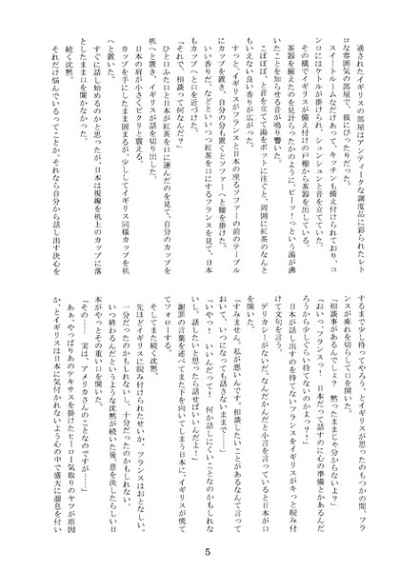 通されたイギリスの部屋はアンティークな調度品に彩られたレト
ロな雰囲気の部屋で、彼にぴったりだった。
スイートルームなだけあって、キッチンも備え付けられており、コ
ンロにはケトルが掛けられ、シュンシュンと音を立てていた。
その横でイギリスが備え付けの戸棚から茶器を出している。
茶器を揃えたのを見計らったかのように、ピーッ！っという湯が沸
いたことを知らせる音が鳴り響いた。
こぽぽぽ、と音を立てて湯をポットに注ぐと、周囲に紅茶のなんと
もいえない良い香りが広がった。
すっと、イギリスがフランスと日本の座るソファーの前のテーブル
にカップを置き、自分の分も置くとソファーへと腰を掛けた。
いい香りだ、などといいつつ紅茶を口にするフランスを見て、日本
もカップへと口を近づけた。
「それで、相談って何なんだ？」
ひと口ふた口と日本が紅茶を口に運んだのを見て、自分のカップを
机へと置き、イギリスが話を切り出した。
日本の肩が小さくピクリと震える。
カップを手にしたまま固まるが、少ししてイギリス同様カップを机
へと置いた。
すぐに話し始めるのかと思ったが、日本は視線を机上のカップに落
としたまま口を開かなかった。
続く沈黙。
それだけ悩んでいるってことか。それなら自分から話し出す決心を
するまで少し待ってやろう、とイギリスが思ったのもつかの間、フラ
ンスが痺れを切らして口を開いた。
「相談事があるんでしょ？　黙ったままじゃ分からないよ？」
「おいっ、フランスっ！　日本だって話すのに心の準備とかあるんだ
ろうから少しくらい待てないのかよっ！」
日本が話し出すのを待てないフランスをイギリスがキッと睨み付
けて文句を言う。
デリカシーがないだ、なんだかんだと小言を言っていると日本が口
を開いた。
「すみません。私が悪いんです。相談したいことがあるなんて言って
おいて、いつになっても話さないままで……」
「いやっ！　いいんだって！　何か話しにくいことなのかもしれな
いし、話したいと思ったら話せばいいんだよ！」
謝罪の言葉を述べてまた下を向いてしまう日本に、イギリスが慌て
てフォローする。
そしてまた続く沈黙。
先ほどイギリスに睨み付けられたせいか、フランスはおとなしい。
一分だったのかもしれないし、十分だったのかもしれない。
いつ終わるんだというような沈黙が続いた後、意を決したらしい日
本がやっとその重い口を開いた。
「その……　実は、アメリカさんのことなのですが……」
あぁ、やっぱりあのテキサスを掛けたヒーロー気取りのヤツが原因
か、とイギリスは日本に気付かれないよう心の中で盛大に溜息を付い
5